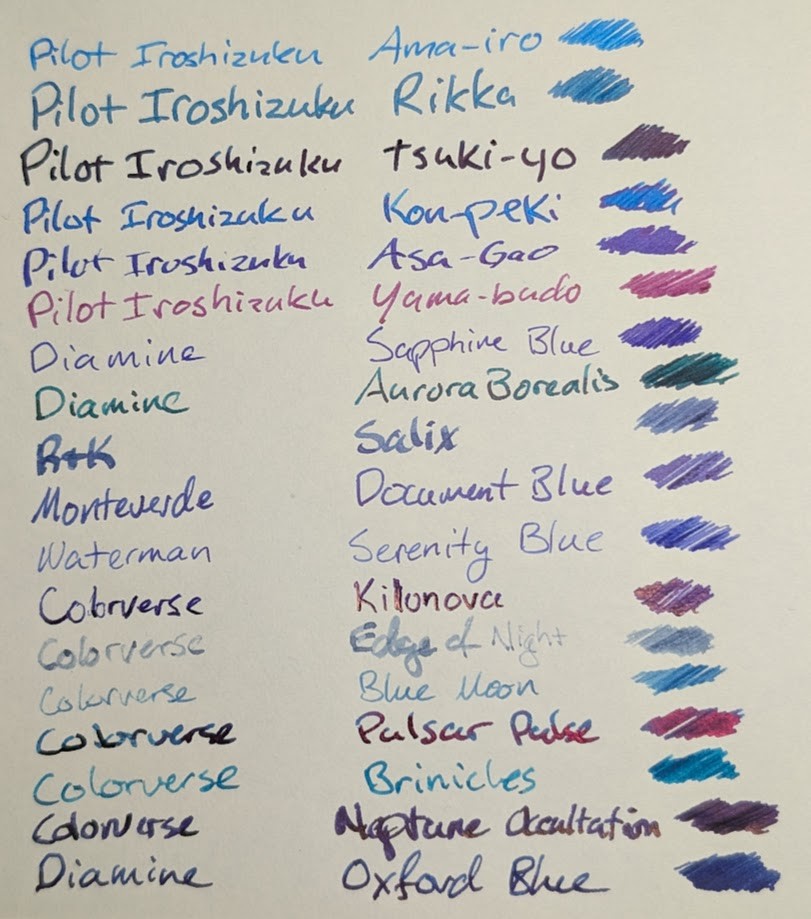 Pilot Iroshizuku Ama-iro
Pilot Iroshizuku Rikka
Pilot Iroshizuku Tsuki-yo
Pilot Iroshizuku Kon-peki
Pilot Iroshizuku Asa-Gao
Pilot Iroshizuku Yama-budo
Diamine Sapphire Blue
Diamine Aurora Borealis
R+K Salix
Monteverde Document Blue
Waterman Serenity Blue
Colorverse Kilonova
Colorverse Edge of Night
Colorverse Blue Moon
Colorverse Pulsar Pulse
Colorverse Brinicles
Colorverse Neptune Occultation
Diamine Oxford Blue